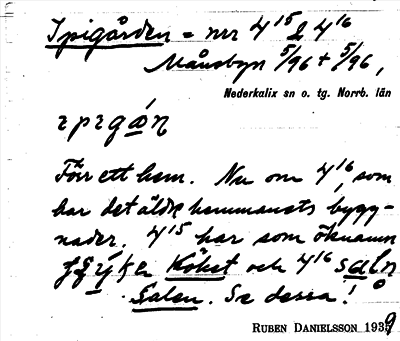 Ipigården = nrr 4¹⁵ & 4¹⁶
Månsbyn 5/96 + 5/96,
Nederkalix sn o. tg. Norrb. län
ɪpɪgán
Förr ett hem. Nu om 4¹⁶, som
har det äldre hemmanets bygg-
nader. 4¹⁵ har som öknamn
Köket och 4¹⁶ saln
Salen. Se dessa!
RUBEN DANIELSSON 1939